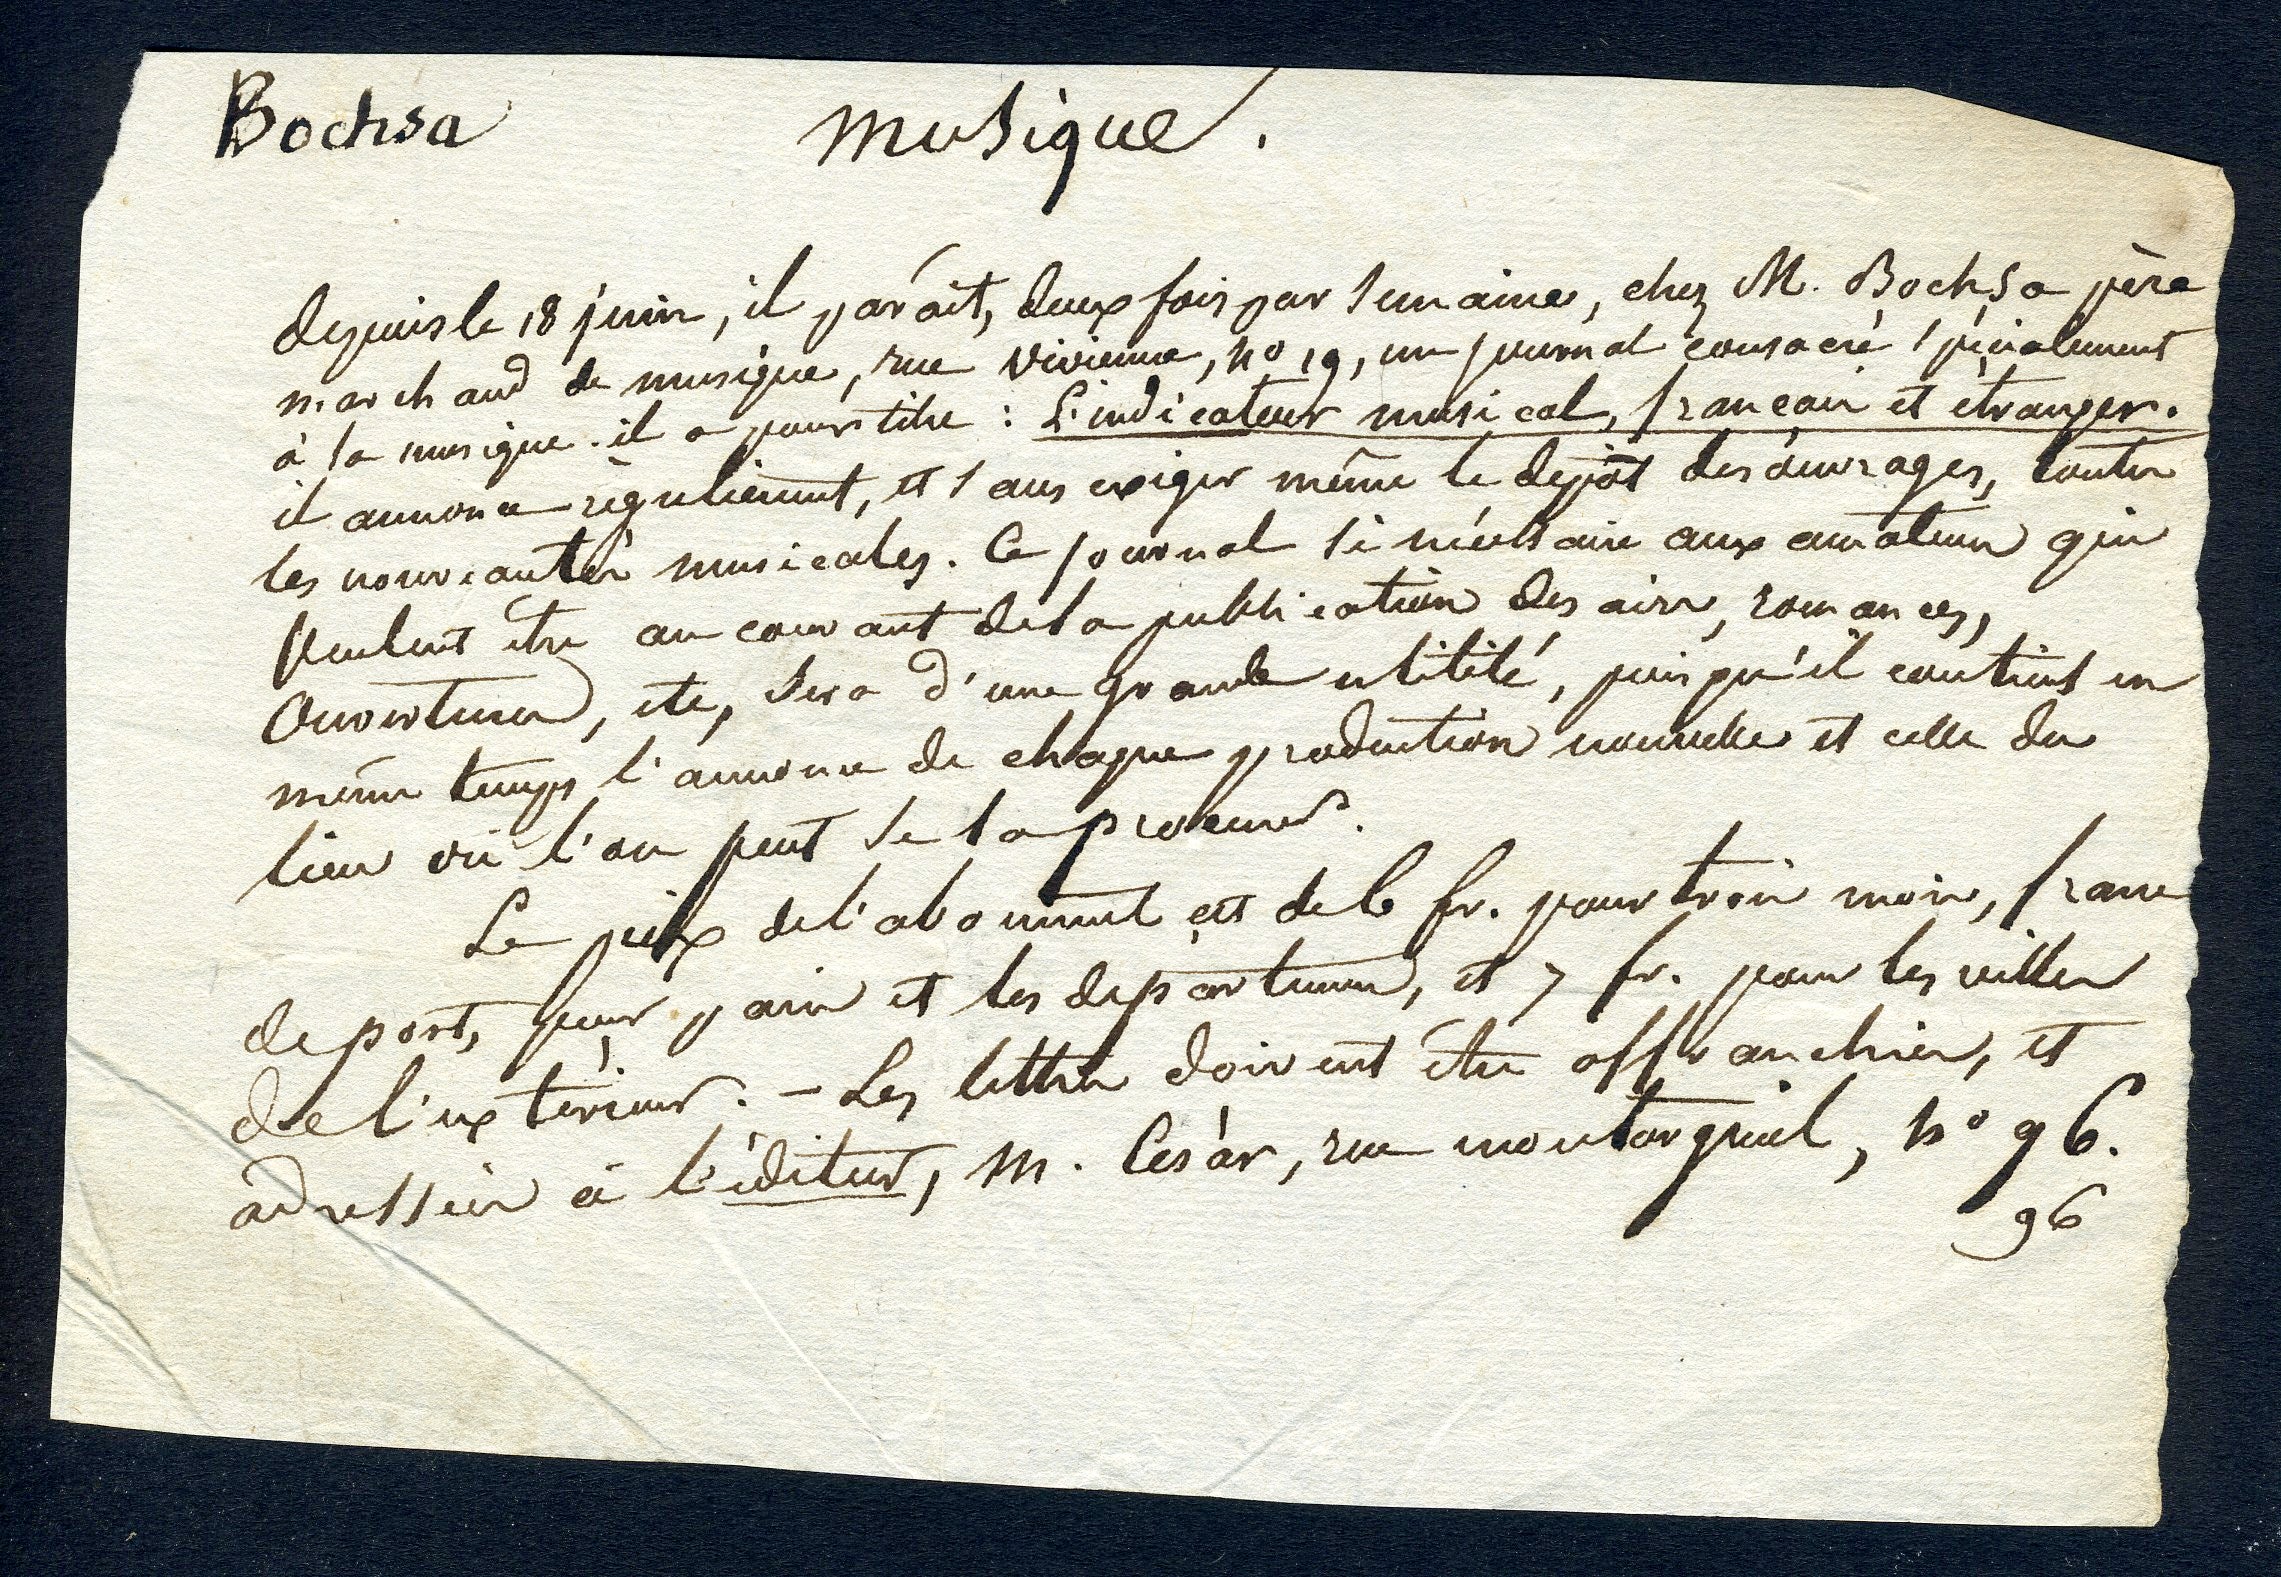 Bochsa musique.
depuis le 18 juin, il paroit, deux fois par semaine, chez M. Bochsa père
marchand de musique, rue vivienne, no 19, un journal consacré spécialement
à la musique. il a pour titre : L'indicateur musical, français et étranger.
il annonce régulierement, et sans exiger même le dépôt des ouvrages, toutes
les nouveautés musicales. Ce journal si nécessaire aux amateurs qui
veulent être au courant de la publication des airs, romances,
Ouvertures, etc, sera d'une grande utilité, puisqu'il contient en
même temps l'annonce de chaque production nouvelle et celle du
lieu où l'on peut se la procurer.
Le prix de l'abonnemt est de 6 fr. pour trois mois, franc
de port, pour paris et les départemens, et 7 fr. pour les villes
de l'extérieur. - Les lettres doivent être affranchies, et
adressées à l'éditeur, M. César, rue montorgueil, no 96.
96